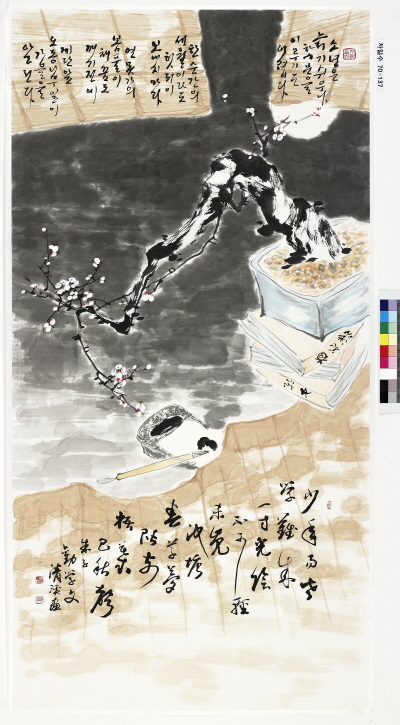 소년은
늙기 쉬우나
학문을
이루기는
어렵다
한순간의
세월이라도
헛되이
보내지 마라
연못가의
봄풀이
채 꿈도
깨기 전에
계단 앞
오동나무 잎이
가을을
알린다
少年易老
學難成
一寸光陰
不可輕
未覺
池塘
春草夢
階前
梧葉
已秋聲
朱子
勸學文
70-137